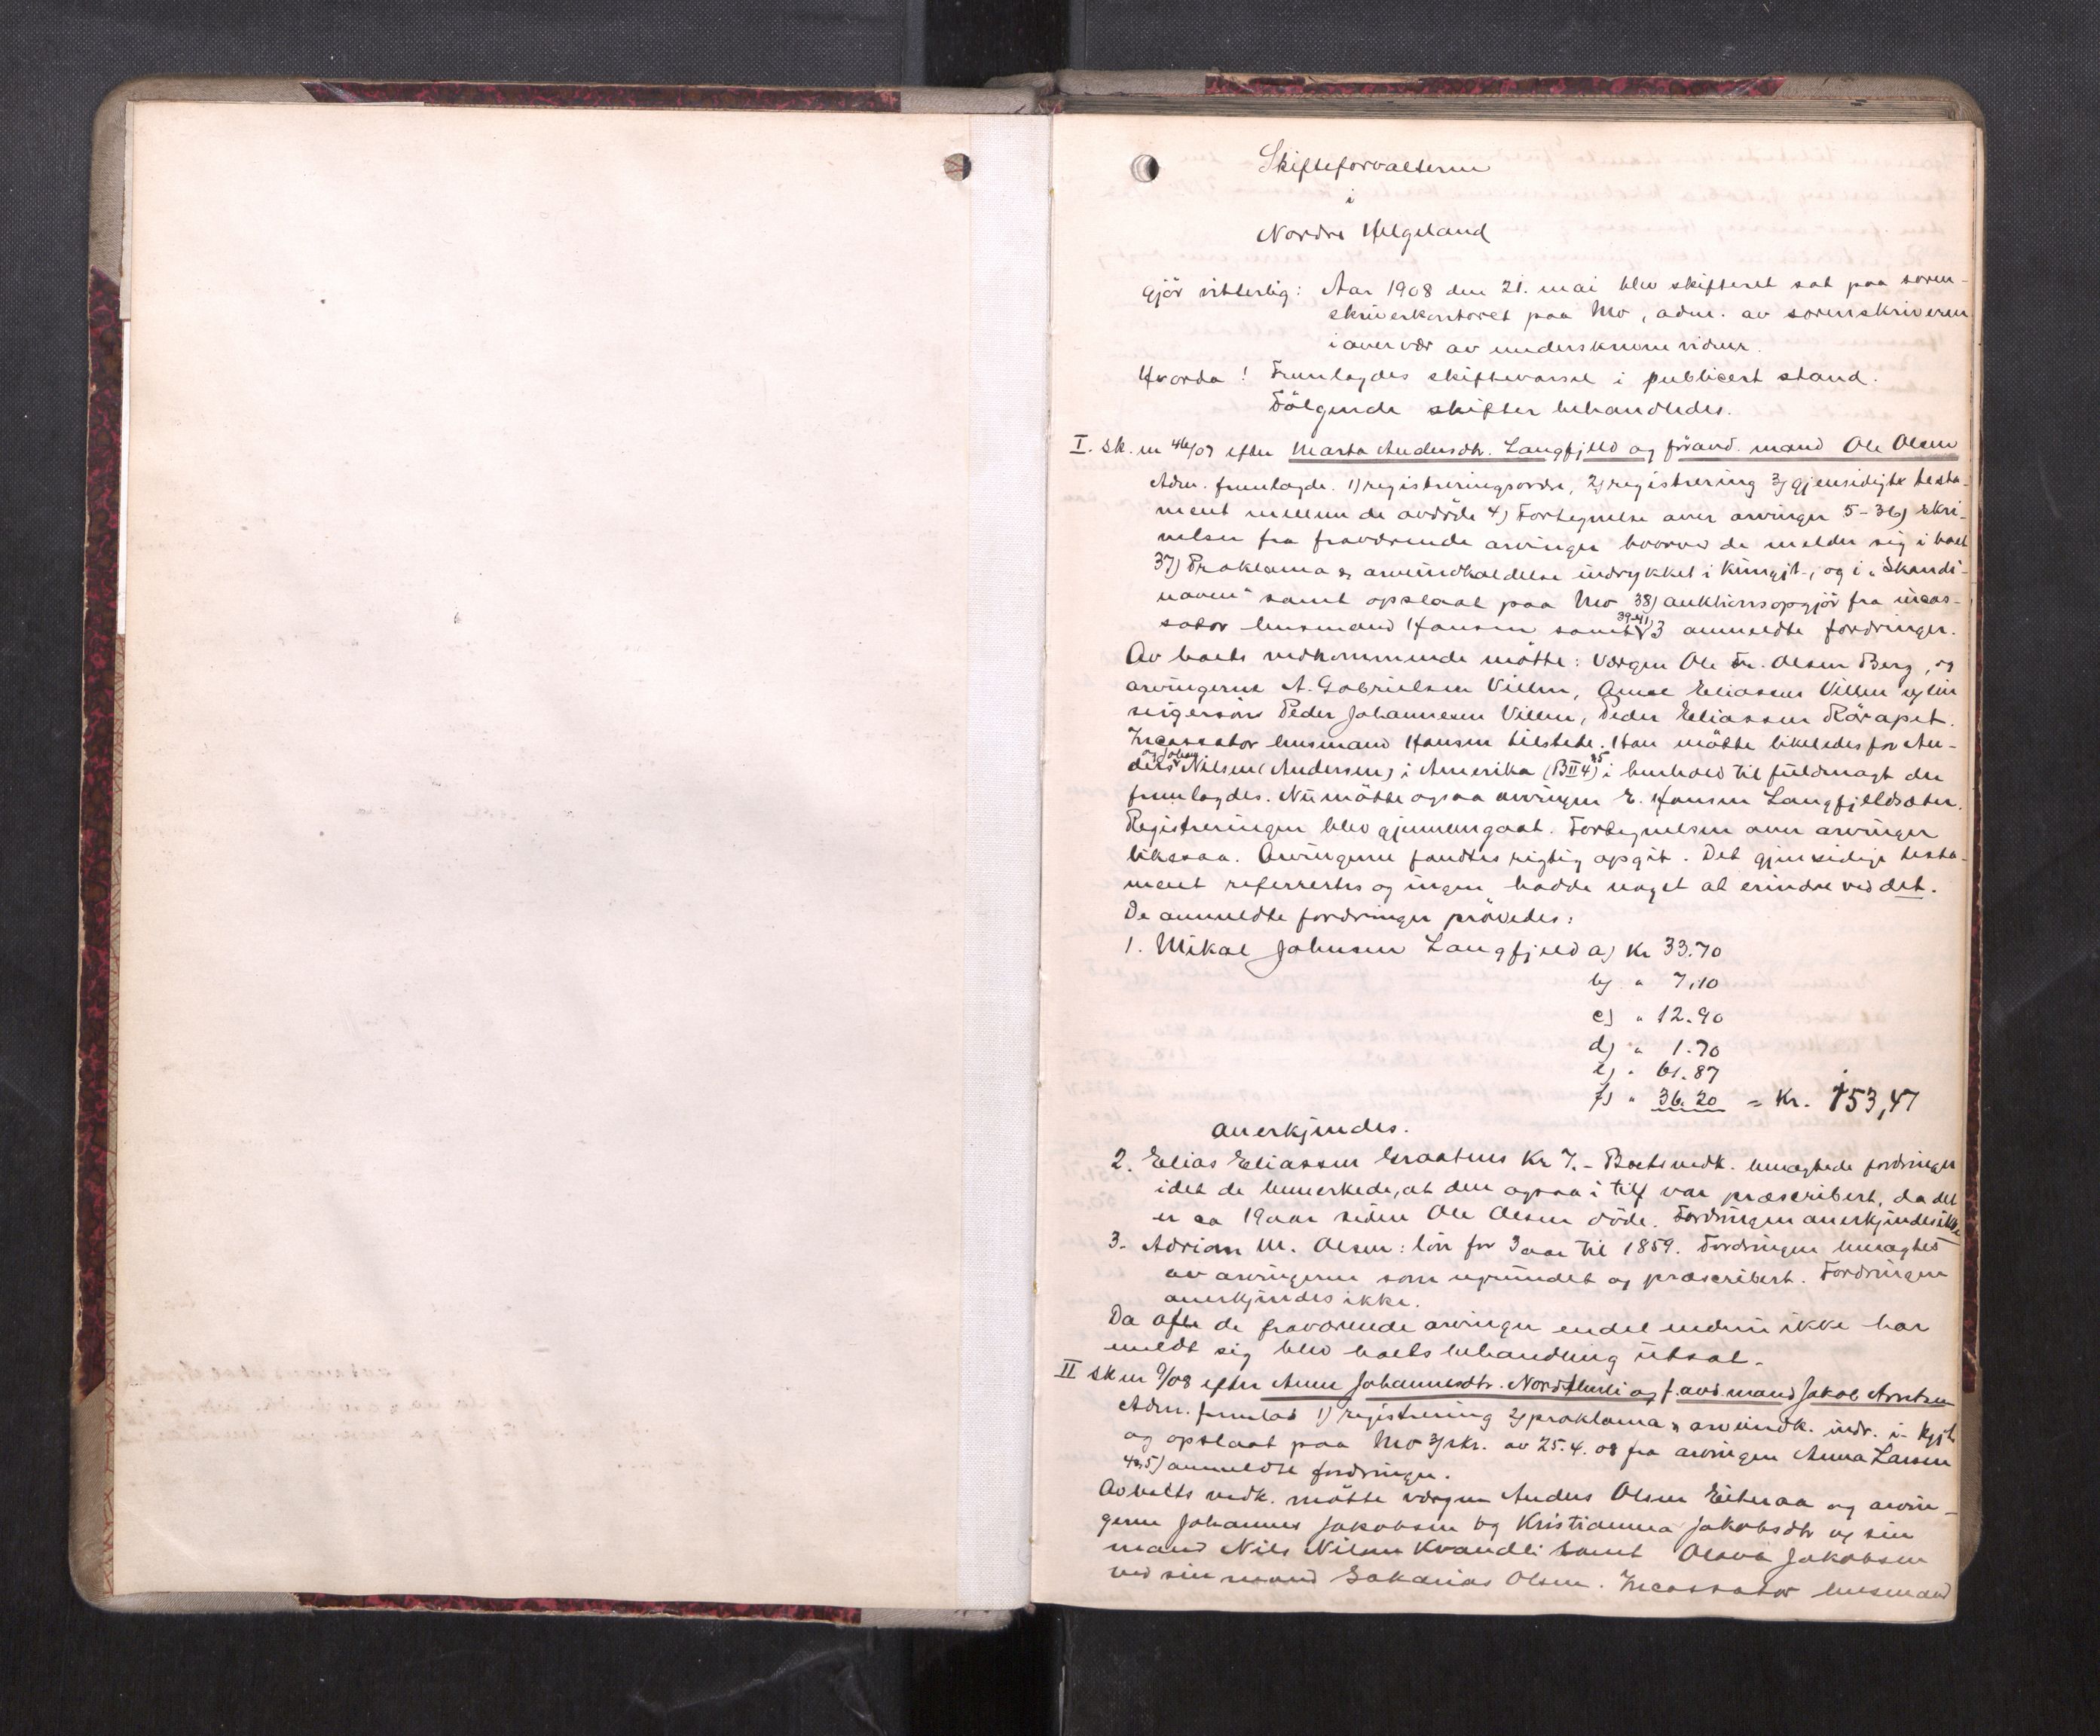 Skifteforvalteren
i
Nordre Helgeland
gjör vitterlig: Aar 1908 den 21. mai blev skifteret sat paa soren-
skriverkontoret paa Mo, adm. av sorenskriveren
i overvær av underskrevne vidner.
Hvorda! Fremlagdes skiftevarsel i publicert stand.
Følgende skifter behandledes.
I. Sk. nr 46/07 efter Marta Andersdtr. Langfjeld og föravd. mand Ole Olsen
Adm. fremlagde. 1) registreringsordre, 2) registrering 3) gjensidigt testa-
ment mellem de avdöde 4) Fortegnelse over arvinger 5-36) skri-
velser fra fraværende arvinger hvorved de melder sig i boet
37) Proklama & arveindkaldelse indrykket i Kungjt., og i "Skandi-
naven" samt opslaat paa Mo 38) auktionsopgjör fra incas-
sator husmand Hansen samt 39-41) 3 anmeldte fordringer.
Av boets vedkommende mötte: Værgen Ole Fr. Olsen Berg, og
arvingerne A. Gabrielsen Villen, Anne Eliassen Villen og sin
Peder Johannesen Villen, Peder Eliassen Röraset.
Incassator husmand Hansen tilstede. Han mötte likeledes for An-
ders og Johan Nilsen (Andersen) i Amerika (BII4) 25 i henhold til fuldmagt der
fremlagdes. Nu mötte ogsaa arvingen E. Hansen Langfjeldsæter.
Registreringen blev gjennemgaat. Fortegnelsen over arvinger
likesaa. Arvingerne fandtes rigtig opgit. Det gjensidige testa-
ment refereertes og ingen hadde noget at erindre ved det.
De anmeldte fordringer prövedes:
1. Mikal Johnsen Langfjeld a) Kr 33.70
b) " 7,10
c) " 12.90
d) " 1.70
e) " 61.87
f) " 36.20 = Kr. 153,47
anerkjendes.
2. Elias Eliassen Kr 7.- Boets vedk. benegtede fordringen
idet de bemerkede, at den ogsaa i tilf var præscribert, da det
er ca 19 aar siden Ole Olsen döde. Fordringen anerkjendes ikke
3. Adrian M. Olsen: lön for 3 aar til 1859. Fordringen benegtes
av arvingerne som ugrundet og præscribert. Fordringen
anerkjendes ikke.
Da av de fraværende arvinger endel endnu ikke har
meldt sig blev boets behandling utsat.
II Sk nr 9/08 efter Anne Johannesdtr. Nordfluli og f. avd. mand Jakob Arntsen
Adm. fremlad 1) registrering 2) proklama & arveindk. indr. i Kgjt.
og opslaat paa Mo 3) skr. av 25.4.08 fra arvingen Anna Larsen
4&5) anmeldte fordringer.
Av boets vedk. mötte værgen Anders Olsen Eiteraa og arvin-
gerne Johannes Jakobsen og Kristianna Jakobsdtr og sin
mand Nils Nilsen Kvandli samt Olava Jakobsen
ved sin mand Sakarias Olsen. Incassator husmand